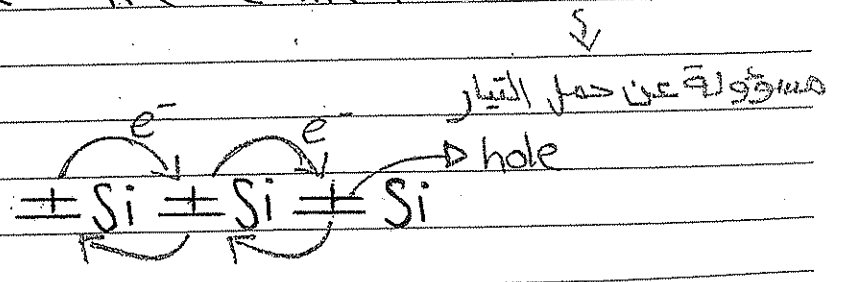 مسؤولة عن حمل التيار
e⁻ e⁻
hole
± Si ± Si ± Si